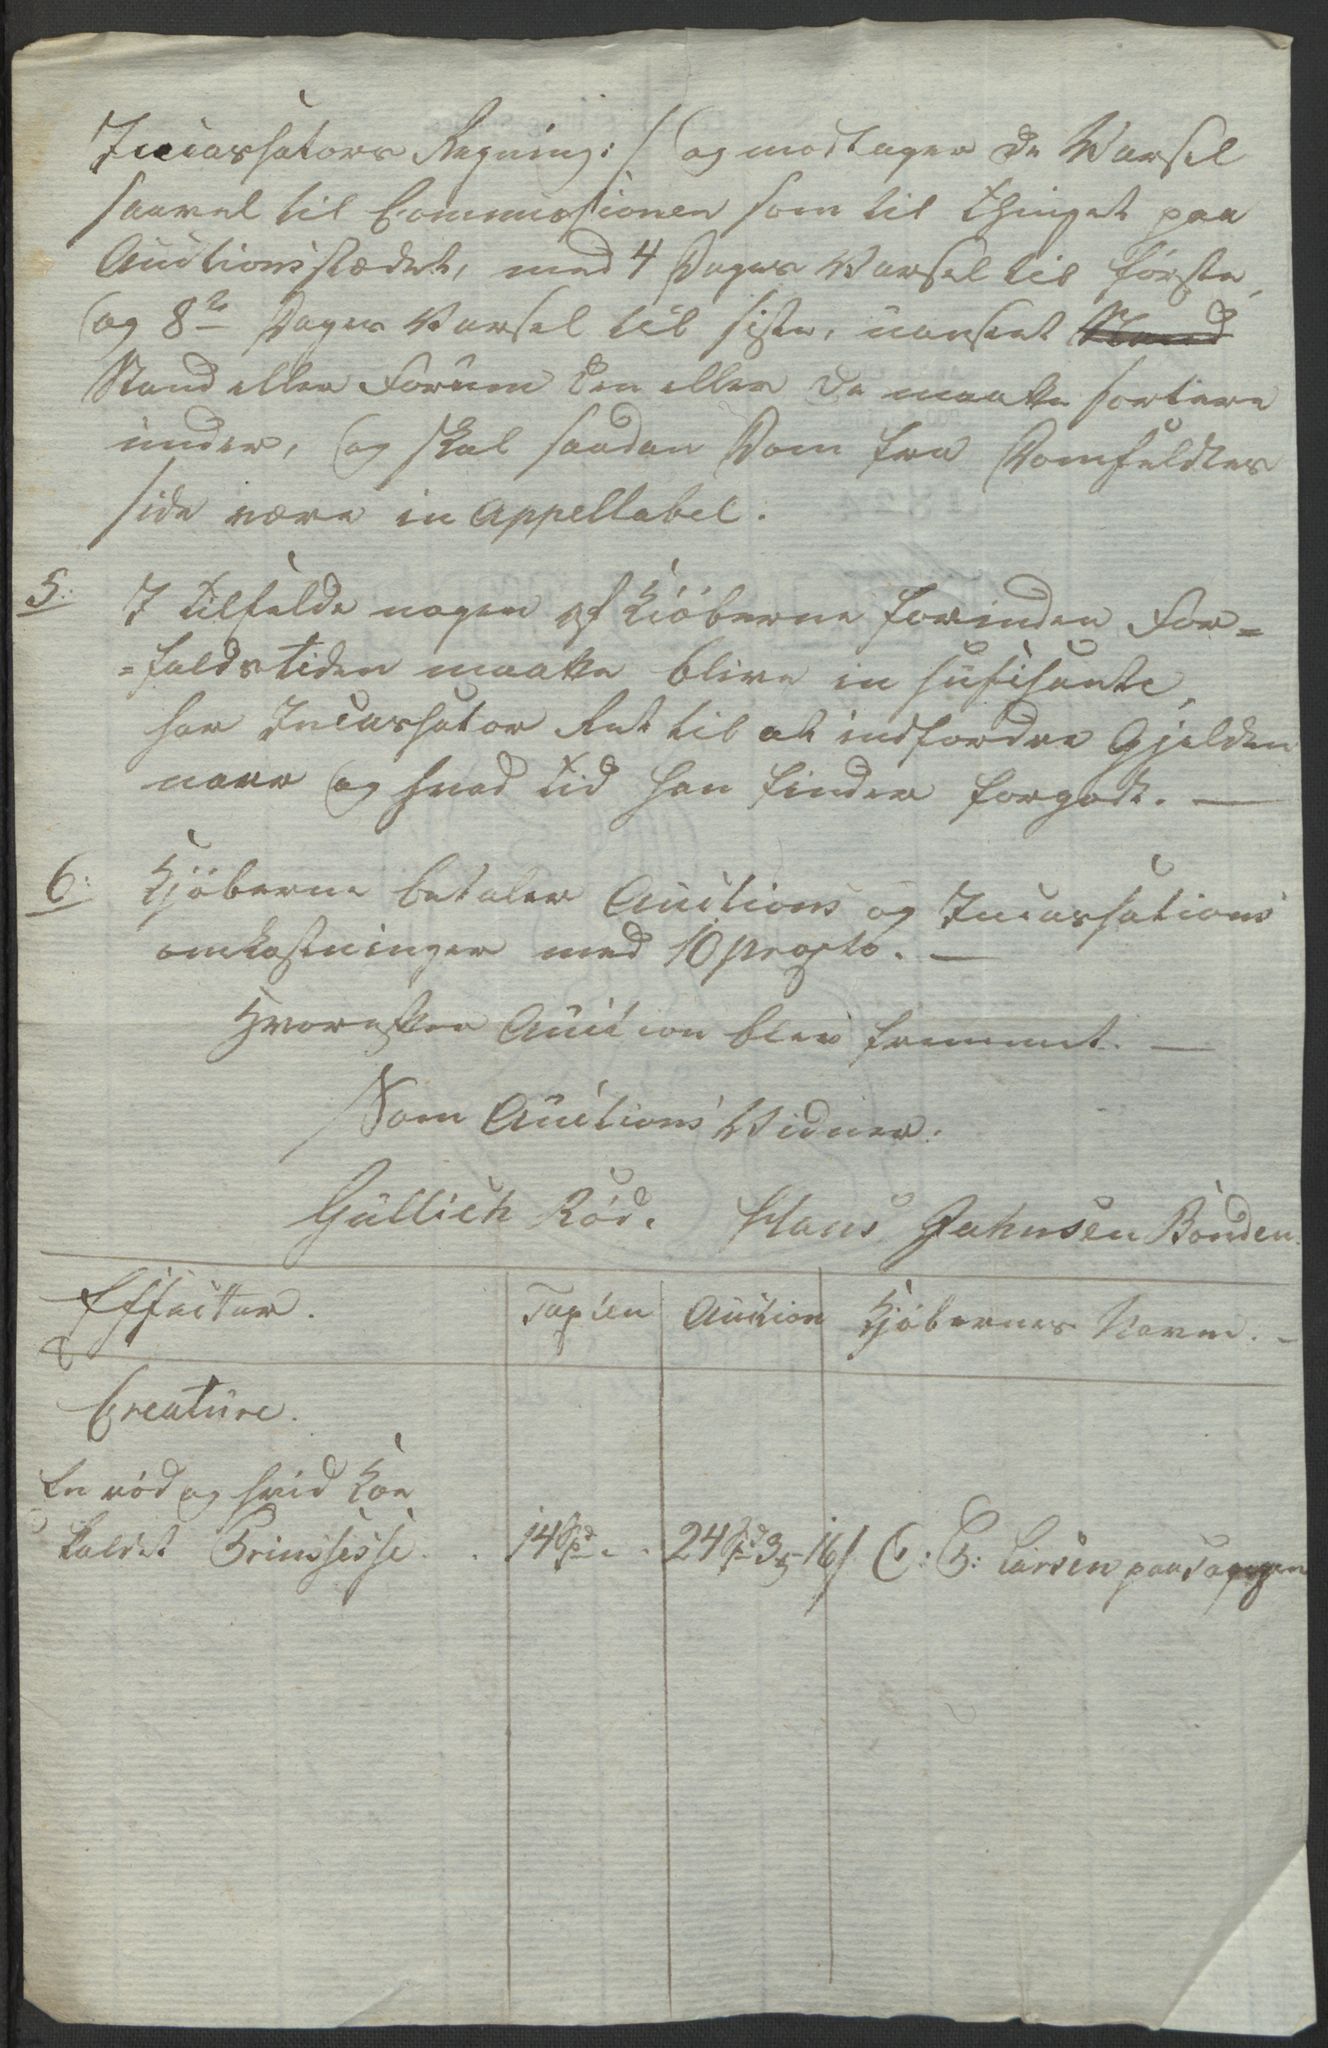 Incassators Regning :/ og modtager de Varsel
saavel til Commissionen som til Thinget paa
Auctionsstædet, med 4 Dages Varsel til første,
og 8te Dages Varsel til siste, uanseet Stand
Stand eller Forum den eller de maatte sortere
under, og skal saadan Dom fra Domfeldtes
side være in appellabel.
5: I Tilfelde nogen af Kiöberne forinden For=
=faldstiden maatte blive in sufisante,
har Incassator Ret til at indfordre Gjelden
naar og hvad Tid han finder forgodt. —
6: Kjöberne betaler Auctions og Incassations
omkostninger med 10 procto. —
Hvorefter Auction blev fremmet. —
Som Auctions Vidner.
Gullich Röd. Hans Jahnsen Bonden.
Effecter. Taxten Auction Kjöbernes Navne. -
Creature.
En röd og hvid Koe
kaldet Prinssesse . . 14 Spd - . 24 Spd 3 16 s C: C: Larsen paa